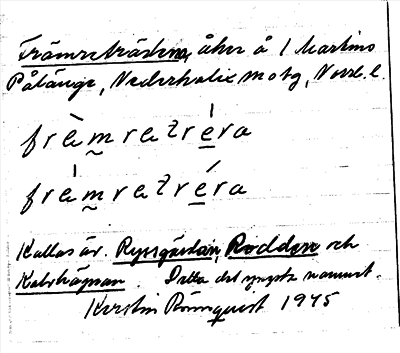 Främreträden, åker å 1 Martins
Pålänge, Nederkalix motg, Norrb. l.
frèmratréra
frémratréra
Kallas äv. Rysgärdan, Rödden och
Kalvhagman. Detta det yngsta namnet.
Kerstin Rönnquist 1945